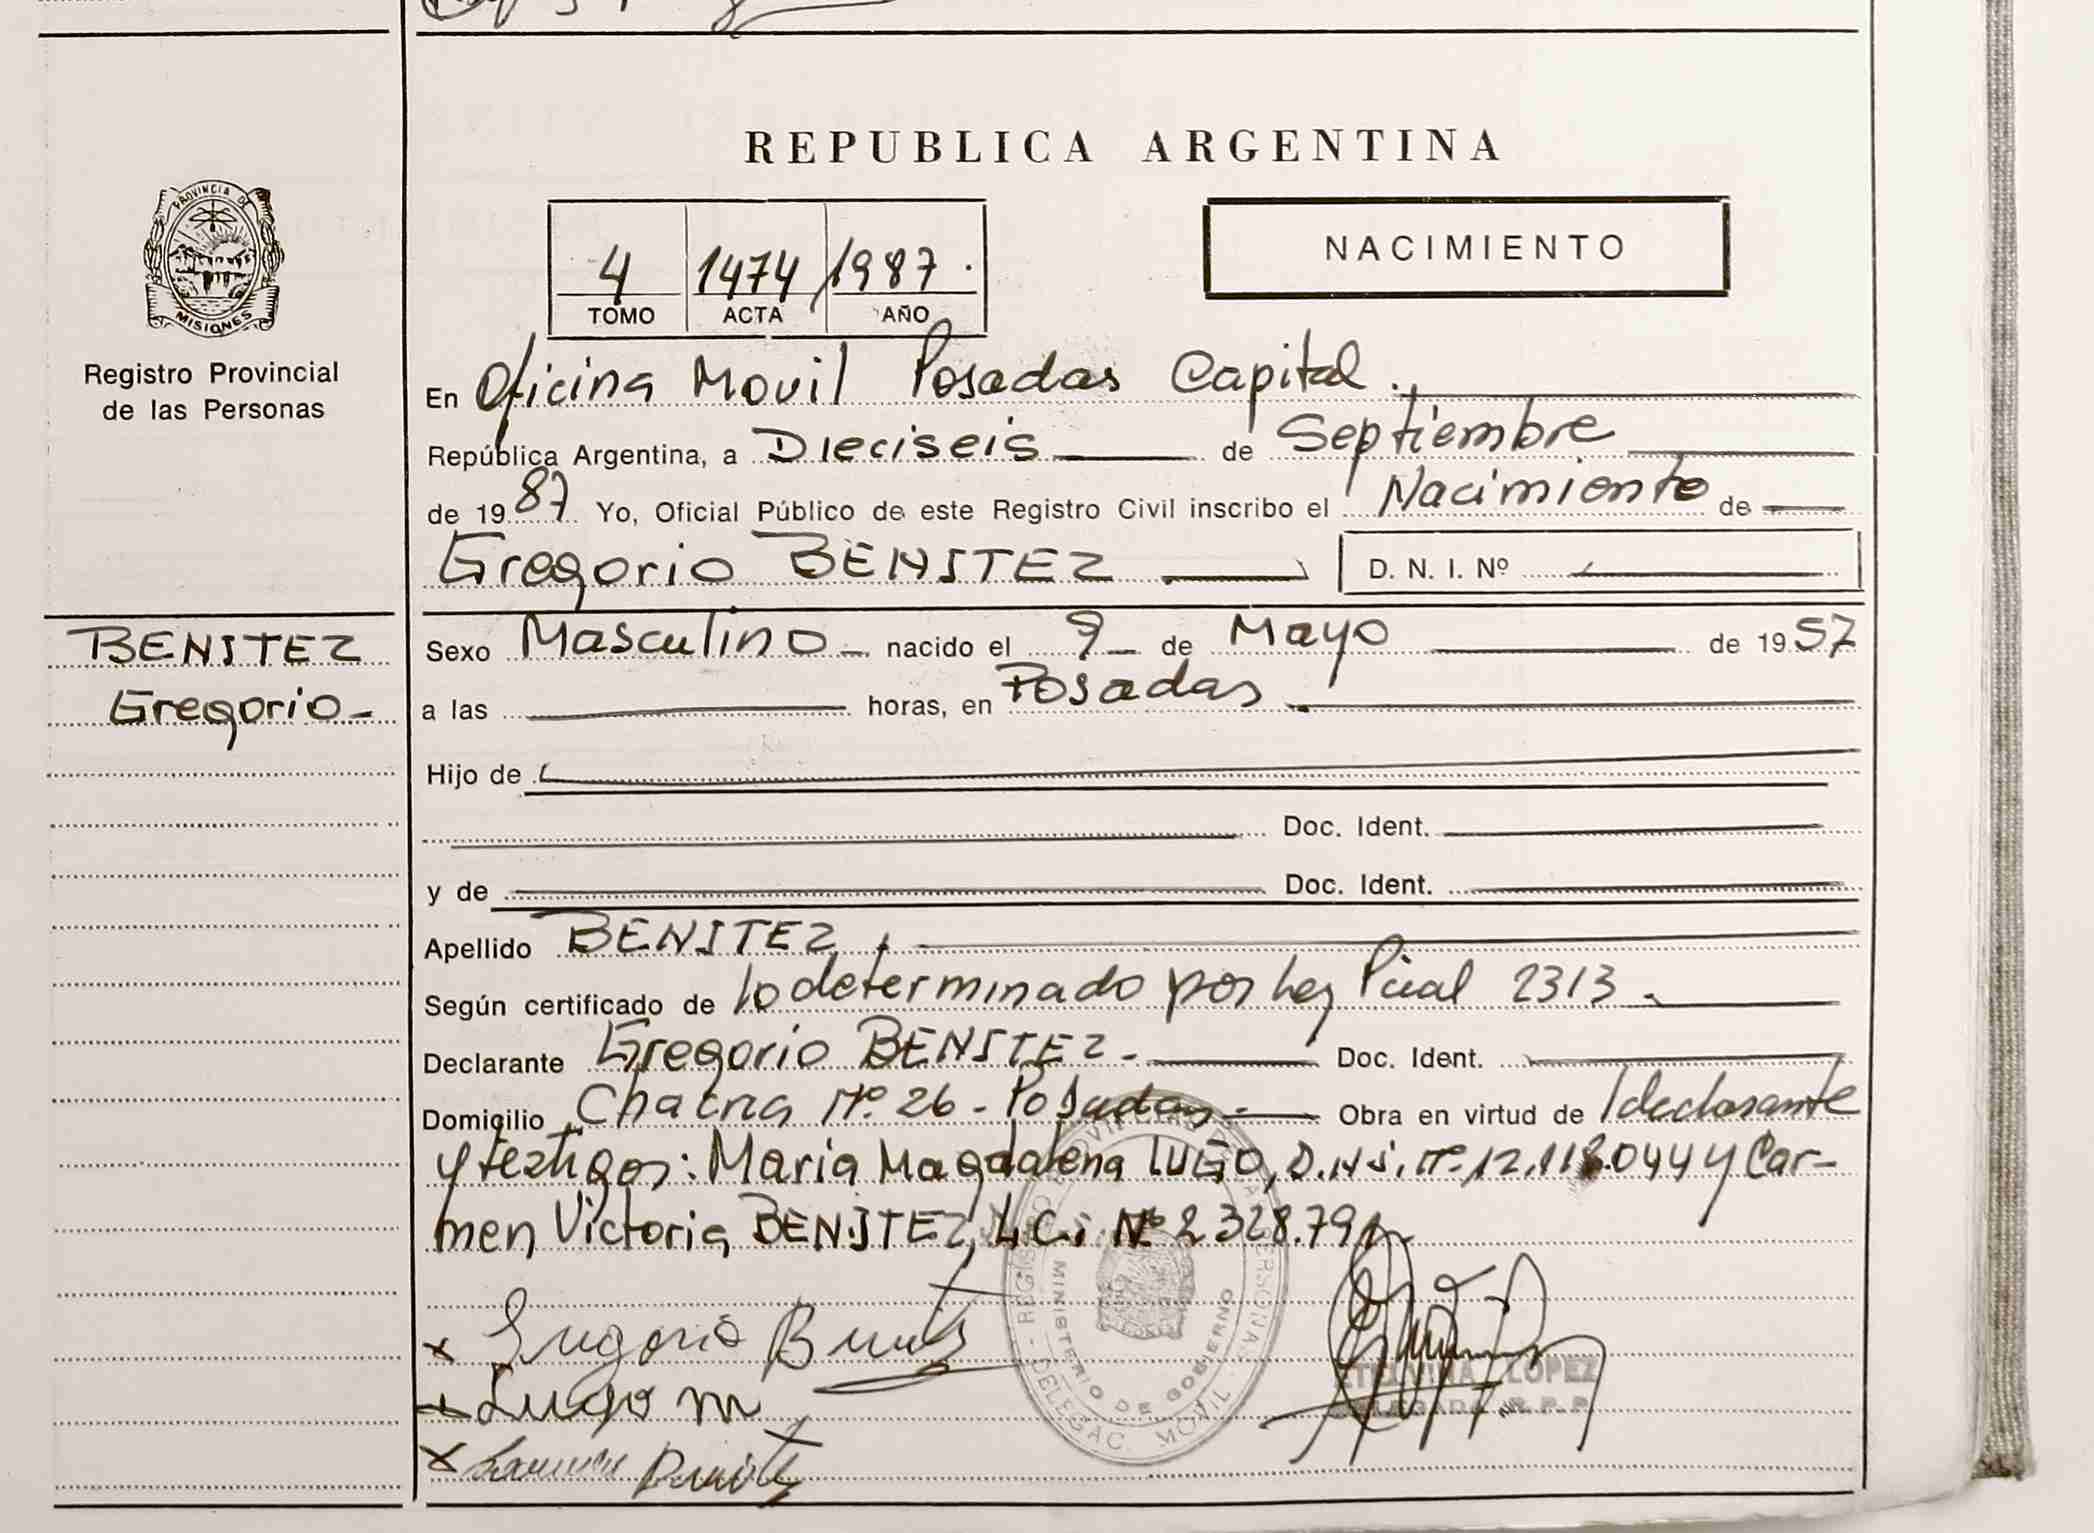 REPUBLICA ARGENTINA
PROVINCIA DE
MISIONES
Registro Provincial
de las Personas
4 1474 1987.
TOMO ACTA AÑO
NACIMIENTO
En Oficina Movil Posadas Capital.
República Argentina, a Dieciseis de Septiembre
de 1987 Yo, Oficial Público de este Registro Civil inscribo el Nacimiento de
Gregorio BENITEZ D. N. I. Nº
BENITEZ
Gregorio
Sexo Masculino nacido el 9 de Mayo de 1957
a las horas, en Posadas
Hijo de
Doc. Ident.
y de Doc. Ident.
Apellido BENITEZ
Según certificado de lo determinado por Ley Pcial 2313
Declarante Gregorio BENITEZ Doc. Ident.
Domicilio Chacra Nº 26 - Posadas - Obra en virtud de / declarante
y testigos: Maria Magdalena LUGO, D.N.I. nº 12.118.044 y Car-
men Victoria BENITEZ, L.C. Nº 2328.791
Gregorio Benitez
Lugo m
Carmen Benitez
REGISTRO PROVINCIAL DE LAS PERSONAS
MINISTERIO DE GOBIERNO
DELEGAC. MOVIL
ETELVINA LOPEZ
DELEGADA R.P.P.